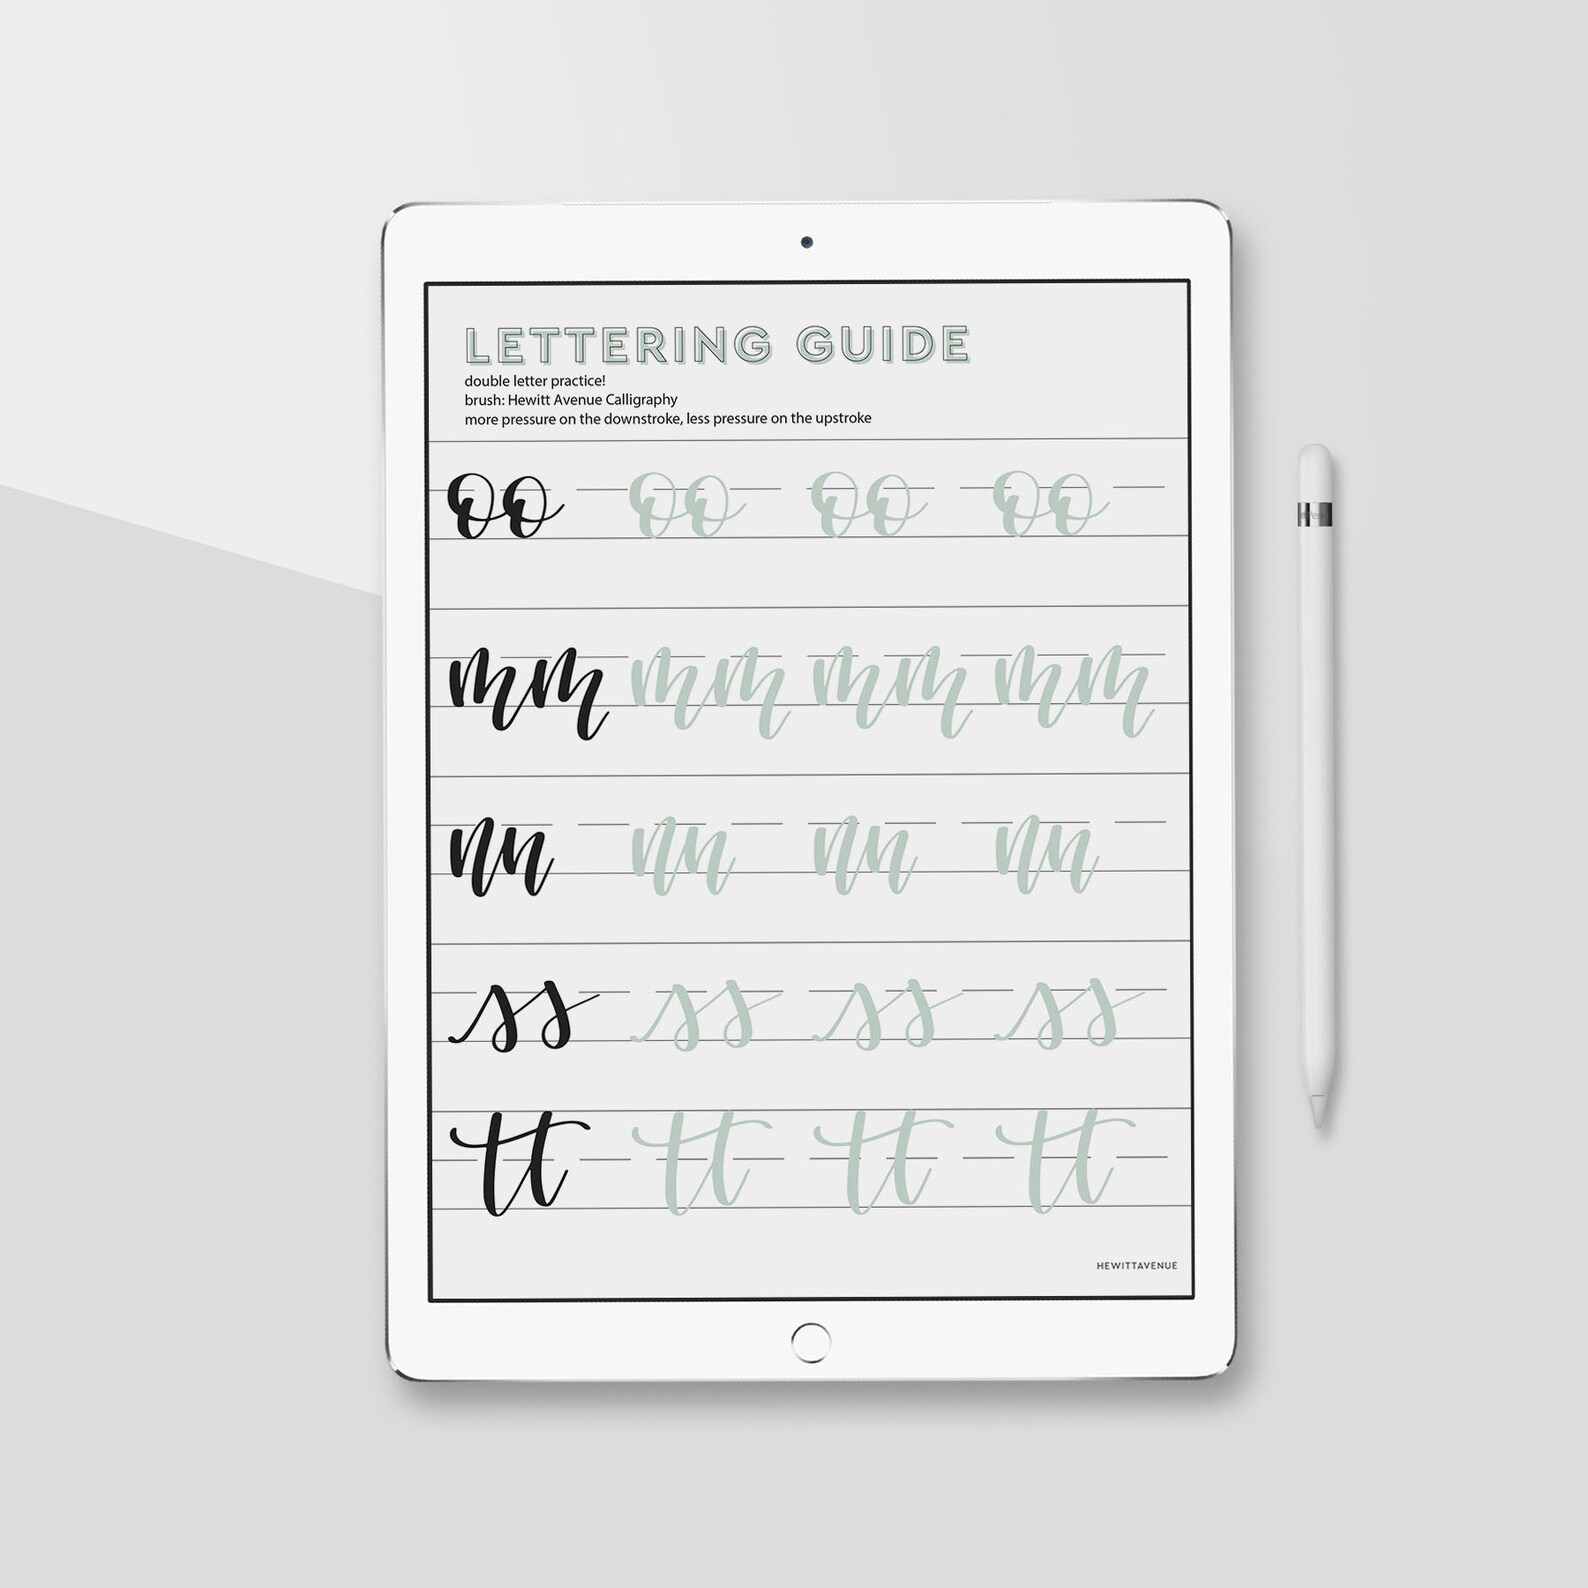 LETTERING GUIDE
double letter practice!
brush: Hewitt Avenue Calligraphy
more pressure on the downstroke, less pressure on the upstroke
oo oo oo oo
mm mm mm mm
nn nn nn nn
ss ss ss ss
tt tt tt tt
HEWITTAVENUE